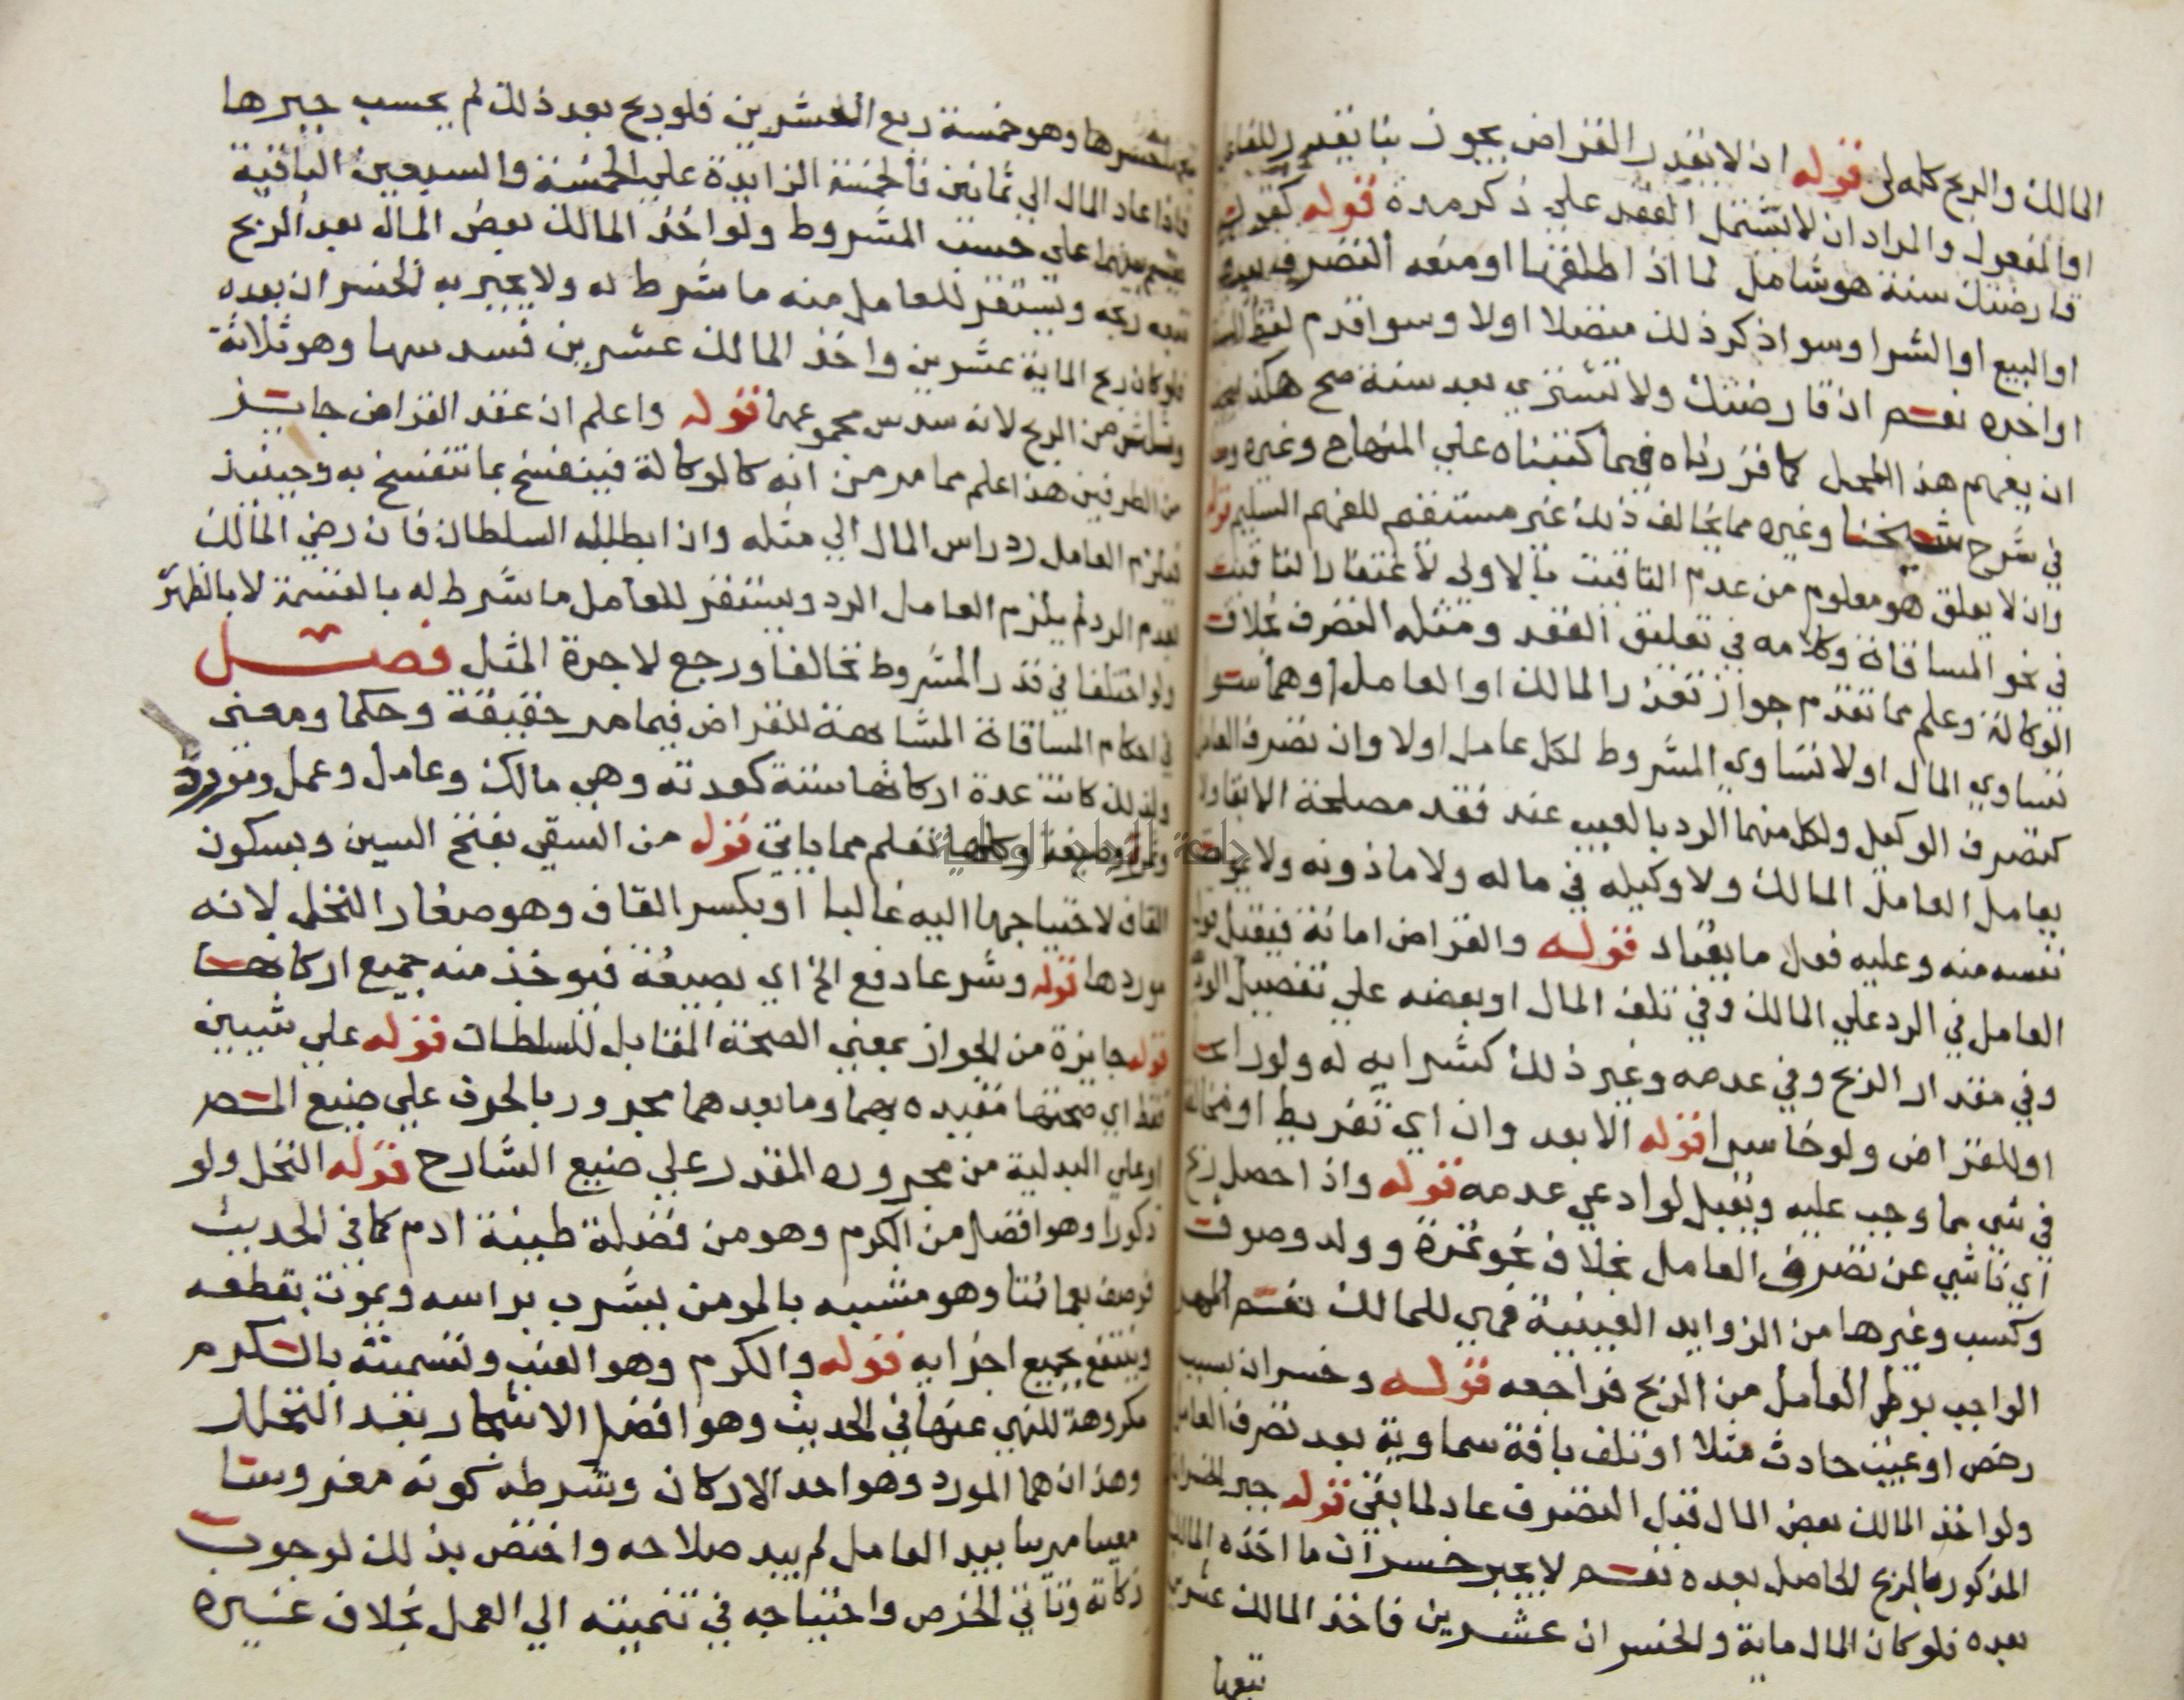 المالك والربح كله لي قوله ان لا يقدر القراض يجوز بنا يقدر للفاعل
او المفعول والمراد ان لا يشتمل العقد على ذكر مدة قوله كقولك
قارضتك سنة هو شامل لما اذا اطلقها او منعه التصرف بعدها
او البيع او الشرا وسوا ذكر ذلك متصلا اولا وسوا قدم لفظ
او اخره نعم ان قارضتك ولا تشتري بعد سنة صح هكذا
ان يفهم هذا المحل كما قررناه فيما كتبناه علي المنهاج وغيره وما
في شرح شيخنا وغيره مما يخالف ذلك غير مستقيم للفهم السليم قوله
وان لا يعلق هو معلوم من عدم التاقيت بالاولى لاغتفار التاقيت
في نحو المساقاة وكلامه في تعليق العقد ومثله التصرف بخلاف
الوكالة وعلم مما تقدم جواز تعدد المالك او العامل او هما سوا
تساوي المال اولا تساوي المشروط لكل عامل اولا وان تصرف العامل
كتصرف الوكيل ولكل منهما الرد بالعيب عند فقد مصلحة الابقا ولا
يعامل العامل المالك ولا وكيله في ماله ولا ماذونه ولا يمون
نفسه منه وعليه فعل ما يعتاد قوله والقراض امانة فيقبل قول
العامل في الرد علي المالك وفي تلف المال او بعضه علي تفصيل
وفي مقدار الربح وفي عدمه وغير ذلك كشرايه له ولو رابحا
او للقراض ولو خاسرا قوله الا بعدوان اي تفريط او مخالفة
في شي مما وجب عليه ويقبل لو ادعي عدمه قوله واذا حصل ربح
اي ناشي عن تصرف العامل بخلاف نحو ثمرة وولد وصوف
وكسب وغيرها من الزوايد العينية فهي للمالك نعم المهر
الواجب بوطي العامل من الربح فراجعه قوله وخسران بسبب
رخص او عيب حادث مثلا او تلف بافة سماوية بعد تصرف العامل
ولو اخذ المالك بعض المال قبل التصرف عاد لما بقي قوله جبر الخسران
المذكور بالربح الحاصل بعده نعم لا يجبر خسران ما اخذه المالك
بعده فلو كان المال ماية والخسران عشرين فاخذ المالك عشرين
تبعها
خسرها وهو خمسة ربع العشرين فلو ربح بعد ذلك لم يحسب جبرها
فاذا عاد المال الي ثمانين فالخمسة الزايدة علي الخمسة والسبعين الباقية
تقسم بينهما على حسب المشروط ولو اخذ المالك بعض المال بعد الربح
تبعه ربحه ويستقر للعامل منه ما شرط له ولا يجبر به الخسران بعده
فلو كان ربح الماية عشرين واخذ المالك عشرين فسدسها وهو ثلاثة
وثلث من الربح لانه سدس مجموعها قوله واعلم ان عقد القراض جايز
من الطرفين هذا علم مما مر من انه كالوكالة فينفسخ بما تنفسخ به وحينيذ
فيلزم العامل رد راس المال الي مثله وان ابطله السلطان فان رضي المالك
بعدم الرد لم يلزم العامل الرد ويستقر للعامل ما شرط له بالقسمة لا بالظهور
ولو اختلفا في قدر المشروط تحالفا ورجع لاجرة المثل فصل
في احكام المساقاة المشابهة للقراض فيما مر حقيقة وحكما ومعنى
ولذلك كانت عدة اركانها ستة كعدته وهي مالك وعامل وعمل ومورد
وثمرة وصيغة وكلها تعلم مما ياتي قوله من السقي بفتح السين وبسكون
القاف لاحتياجها اليه غالبا او بكسر القاف وهو صغار النخل لانه
موردها قوله وشرعا دفع الخ اي بصيغة فيوخذ منه جميع اركانها
قوله جايزة من الجواز بمعني الصحة المقابل للبطلان قوله علي شيين
فقط اي صحتها مقيده بهما وما بعدهما مجرور بالحرف علي صنيع المص
او علي البدلية من مجروره المقدر علي صنيع الشارح قوله النخل ولو
ذكورا وهو افضل من الكرم وهو من فضلة طينة ادم كما في الحديث
فوصف بعماتنا وهو مشبه بالمومن يشرب براسه ويموت بقطعه
وينتفع بجميع اجزايه قوله والكرم وهو العنب وتسميته بالكرم
مكروهة للنهي عنها في الحديث وهو افضل الاشجار بعد النخل
وهذان هما المورد وهو احد الاركان وشرطه كونه مغروسا
معينا مريبا بيد العامل لم يبد صلاحه واختص بذلك لوجوب
زكاته وتاتي الخرص واحتياجه في تنميته الي العمل بخلاف غيره
جامعة النجاح الوطنية